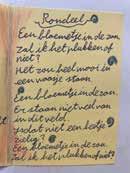 Rondeel
Een bloemetje in de zon
zal ik het plukken of
niet?
Het zou heel mooi in
een vaasje staan
Een bloemetje in de zon.
Er staan niet veel van
in dit veld.
Is dat niet een beetje
zielig?
Een bloemetje in de zon.
Zal ik het plukken of niet?